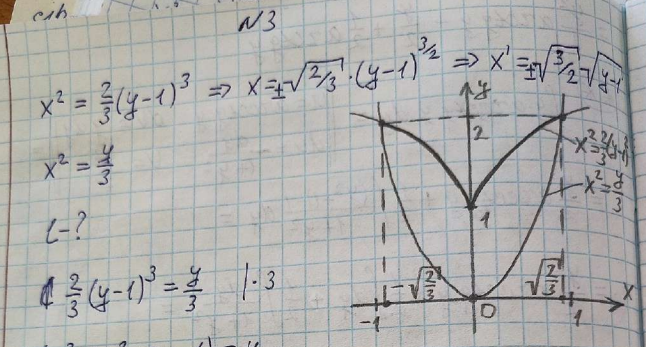 N3
x² = 2/3 (y-1)³ => x = ±√(2/3) · (y-1)^(3/2) => x' = ±√(3/2) √(y-1)
x² = y/3
L-?
2/3 (y-1)³ = y/3 | · 3
y
2
x² = 2/3 (y-1)³
x² = y/3
1
-√(2/3)
√(2/3)
x
-1
0
1